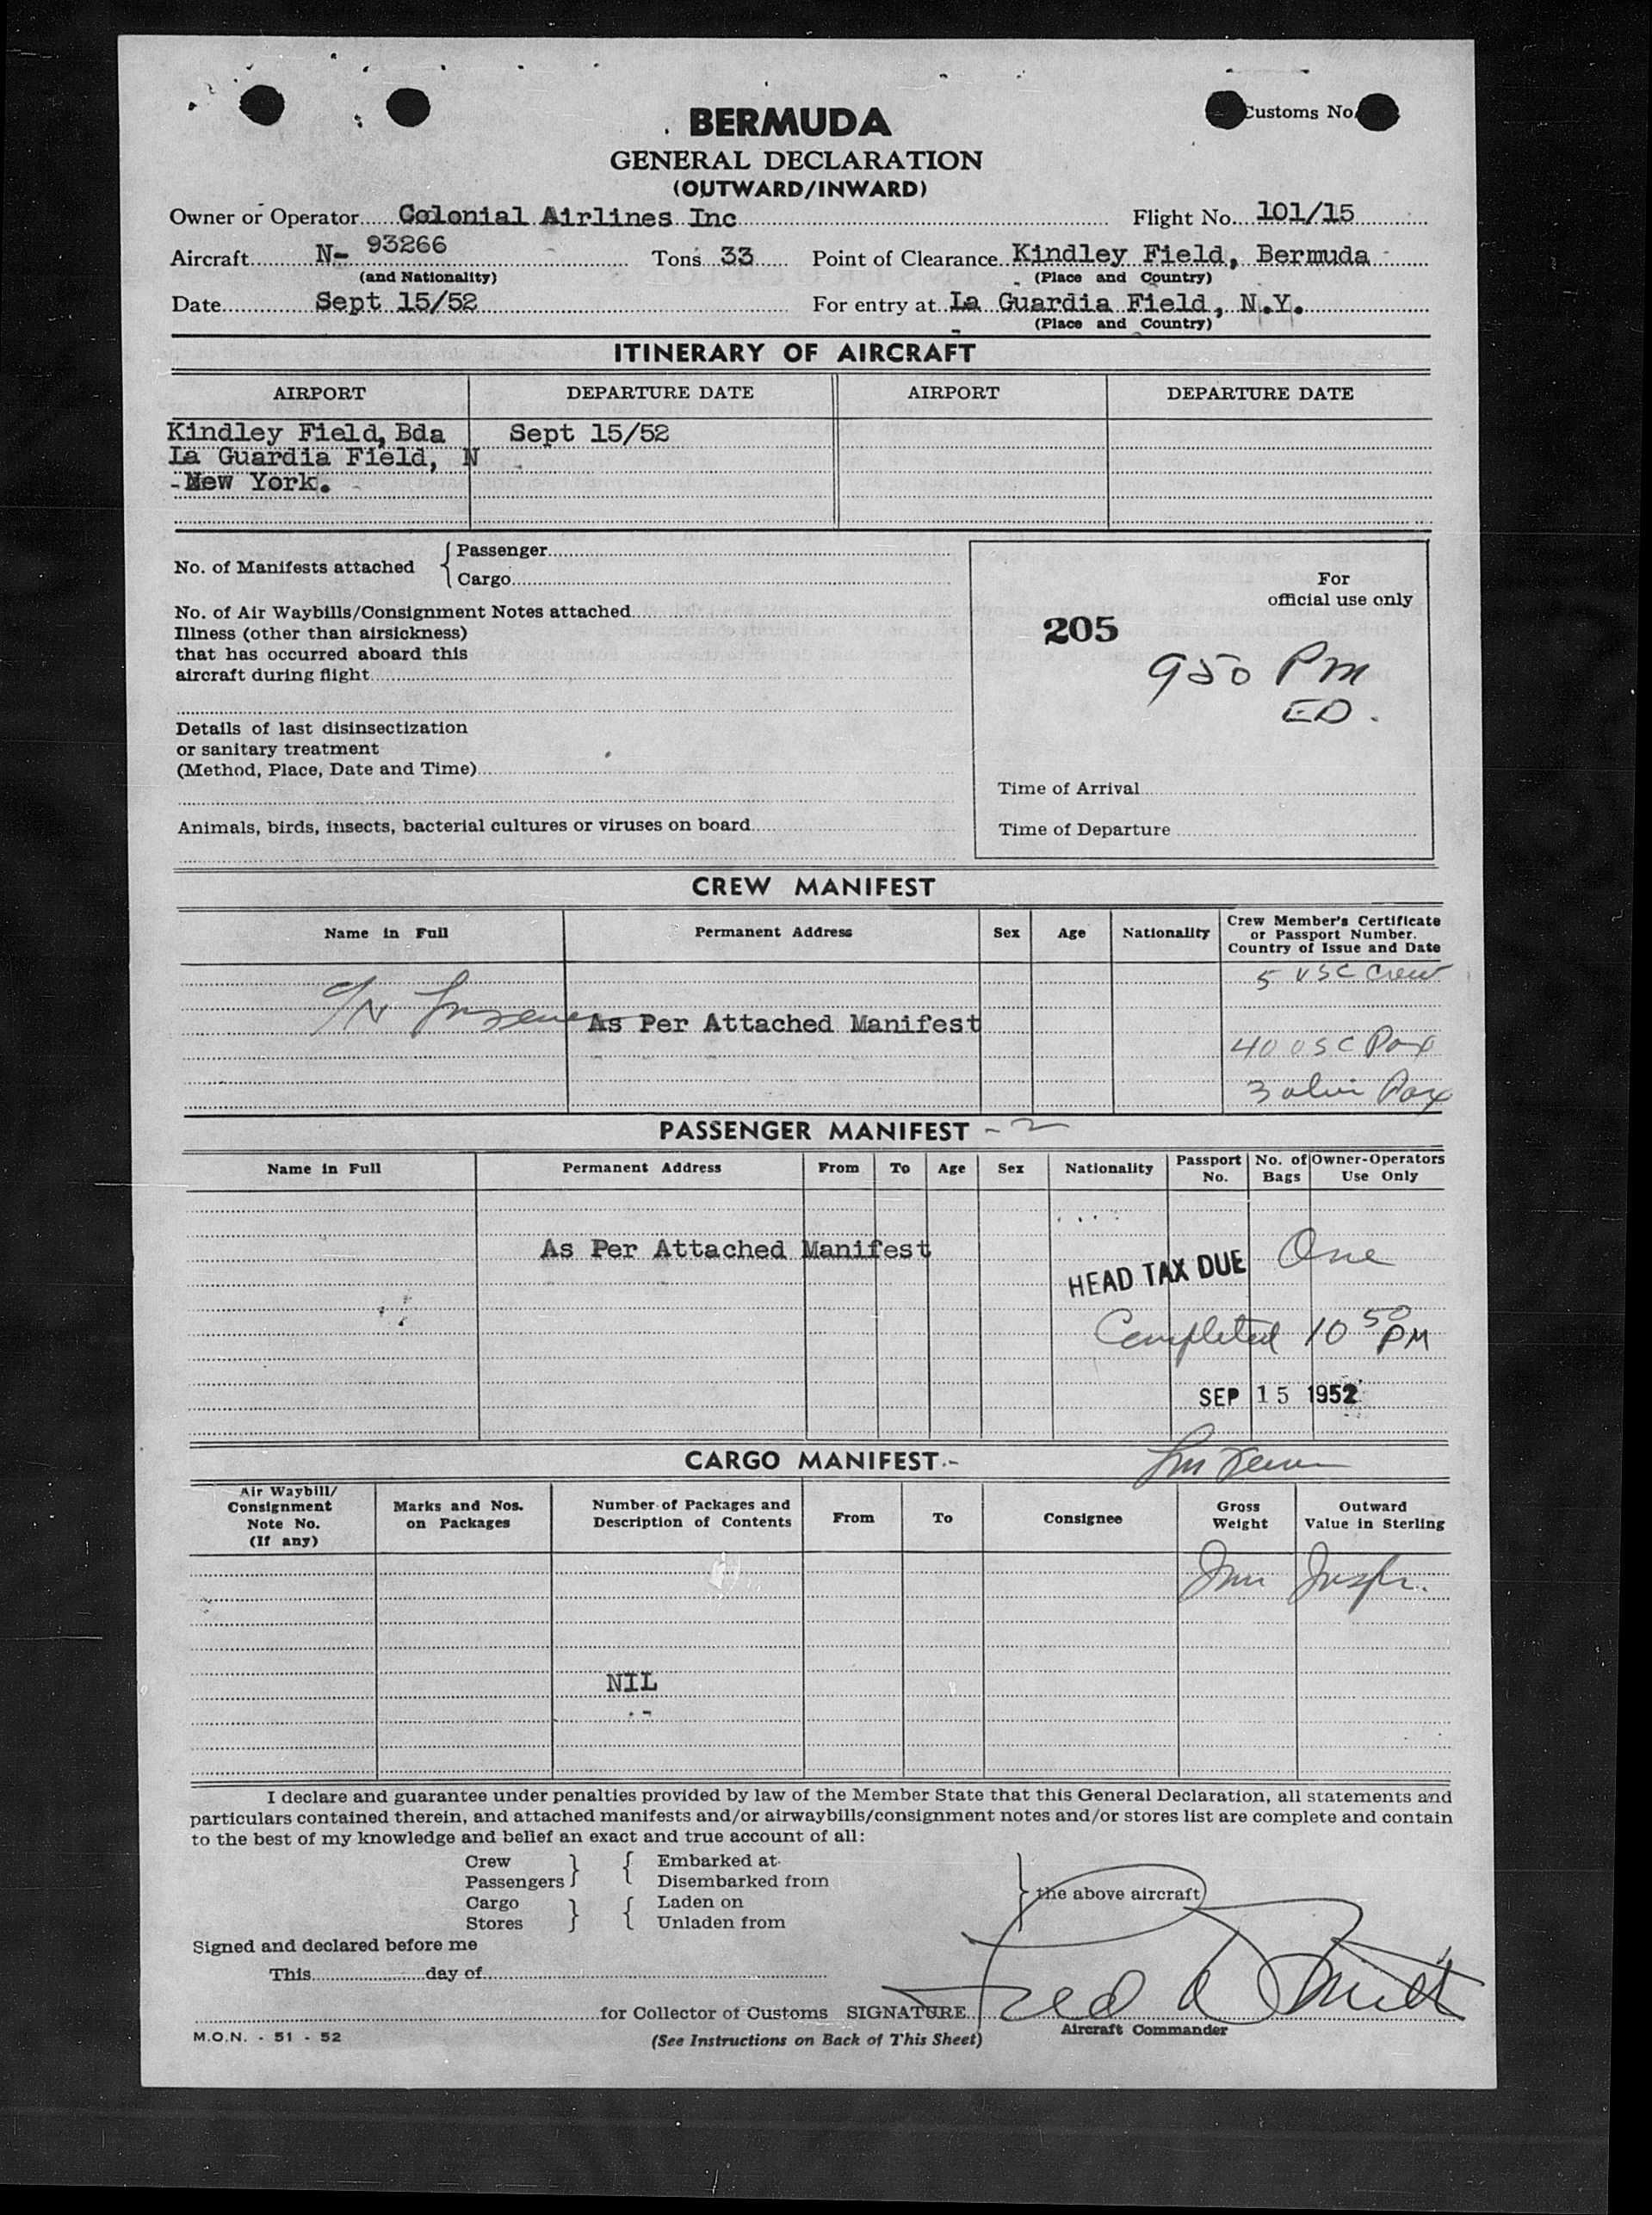 Customs No.
BERMUDA
GENERAL DECLARATION
(OUTWARD/INWARD)
Owner or Operator Colonial Airlines Inc Flight No. 101/15
Aircraft N- 93266 Tons 33 Point of Clearance Kindley Field, Bermuda
(and Nationality) (Place and Country)
Date Sept 15/52 For entry at La Guardia Field, N.Y.
(Place and Country)
ITINERARY OF AIRCRAFT
AIRPORT DEPARTURE DATE AIRPORT DEPARTURE DATE
Kindley Field, Bda Sept 15/52
La Guardia Field, N
-New York.
No. of Manifests attached { Passenger
Cargo
No. of Air Waybills/Consignment Notes attached
Illness (other than airsickness)
that has occurred aboard this
aircraft during flight
Details of last disinsectization
or sanitary treatment
(Method, Place, Date and Time)
Animals, birds, insects, bacterial cultures or viruses on board
For
official use only
205
950 PM
ED.
Time of Arrival
Time of Departure
CREW MANIFEST
Name in Full Permanent Address Sex Age Nationality Crew Member's Certificate or Passport Number. Country of Issue and Date
5 USC Crew
As Per Attached Manifest
40 USC Pax
3 alien Pax
PASSENGER MANIFEST - 2
Name in Full Permanent Address From To Age Sex Nationality Passport No. No. of Bags Owner-Operators Use Only
As Per Attached Manifest
HEAD TAX DUE One
Completed 10 50 PM
SEP 15 1952
CARGO MANIFEST.-
Air Waybill/ Consignment Note No. (If any) Marks and Nos. on Packages Number of Packages and Description of Contents From To Consignee Gross Weight Outward Value in Sterling
Imm Inspr.
NIL
I declare and guarantee under penalties provided by law of the Member State that this General Declaration, all statements and
particulars contained therein, and attached manifests and/or airwaybills/consignment notes and/or stores list are complete and contain
to the best of my knowledge and belief an exact and true account of all:
Crew } { Embarked at
Passengers Disembarked from
Cargo } { Laden on
Stores Unladen from
} the above aircraft
Signed and declared before me
This day of
for Collector of Customs SIGNATURE Fred D Smith
Aircraft Commander
M.O.N. - 51 - 52
(See Instructions on Back of This Sheet)